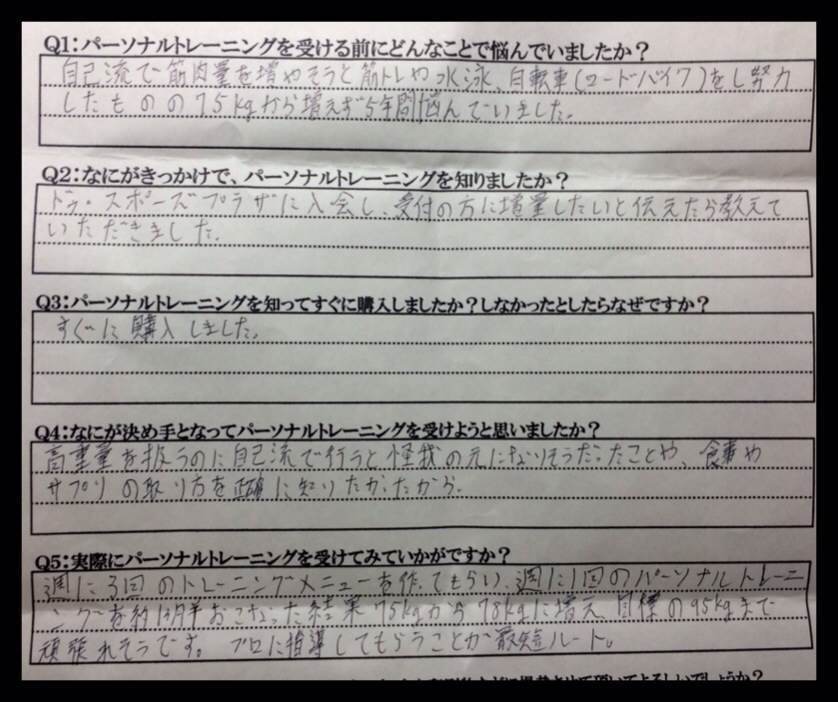 Q1：パーソナルトレーニングを受ける前にどんなことで悩んでいましたか？
自己流で筋肉量を増やそうと筋トレや水泳、自転車(ロードバイク)をし努力
したものの75kgから増えず5年間悩んでいました。
Q2：なにがきっかけで、パーソナルトレーニングを知りましたか？
ドゥ・スポーツプラザに入会し、受付の方に増量したいと伝えたら教えて
いただきました。
Q3：パーソナルトレーニングを知ってすぐに購入しましたか？しなかったとしたらなぜですか？
すぐに購入しました。
Q4：なにが決め手となってパーソナルトレーニングを受けようと思いましたか？
高重量を扱うのに自己流で行うと怪我の元になりそうだったことや、食事や
サプリの取り方を正確に知りたかったから。
Q5：実際にパーソナルトレーニングを受けてみていかがですか？
週に3回のトレーニングメニューを作ってもらい、週に1回のパーソナルトレーニ
ングを約1ヶ月半おこなった結果75kgから78kgに増え、目標の95kgまで
頑張れそうです。プロに指導してもらうことが最短ルート。